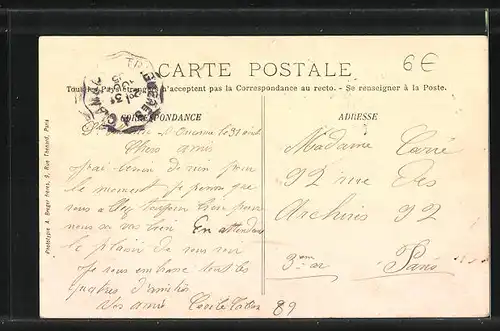 6€
CARTE POSTALE
Tous les Pays étrangers n'acceptent pas la Correspondance au recto. - Se renseigner à la Poste.
CORRESPONDANCE
ADRESSE
le 31 août
Chers amis
de rien pour
le moment je pense que
vous allez toujour bien pour
nous sa va bien En attendent
le plaisir de vous voir
je vous embrasse tout les
quatres d'amitiés
Vos amis Cecile
Madame Carré
92 rue des
Archives 92
3em ar Paris
89
Phototypie A. Breger Frères, 9, Rue Thénard, Paris